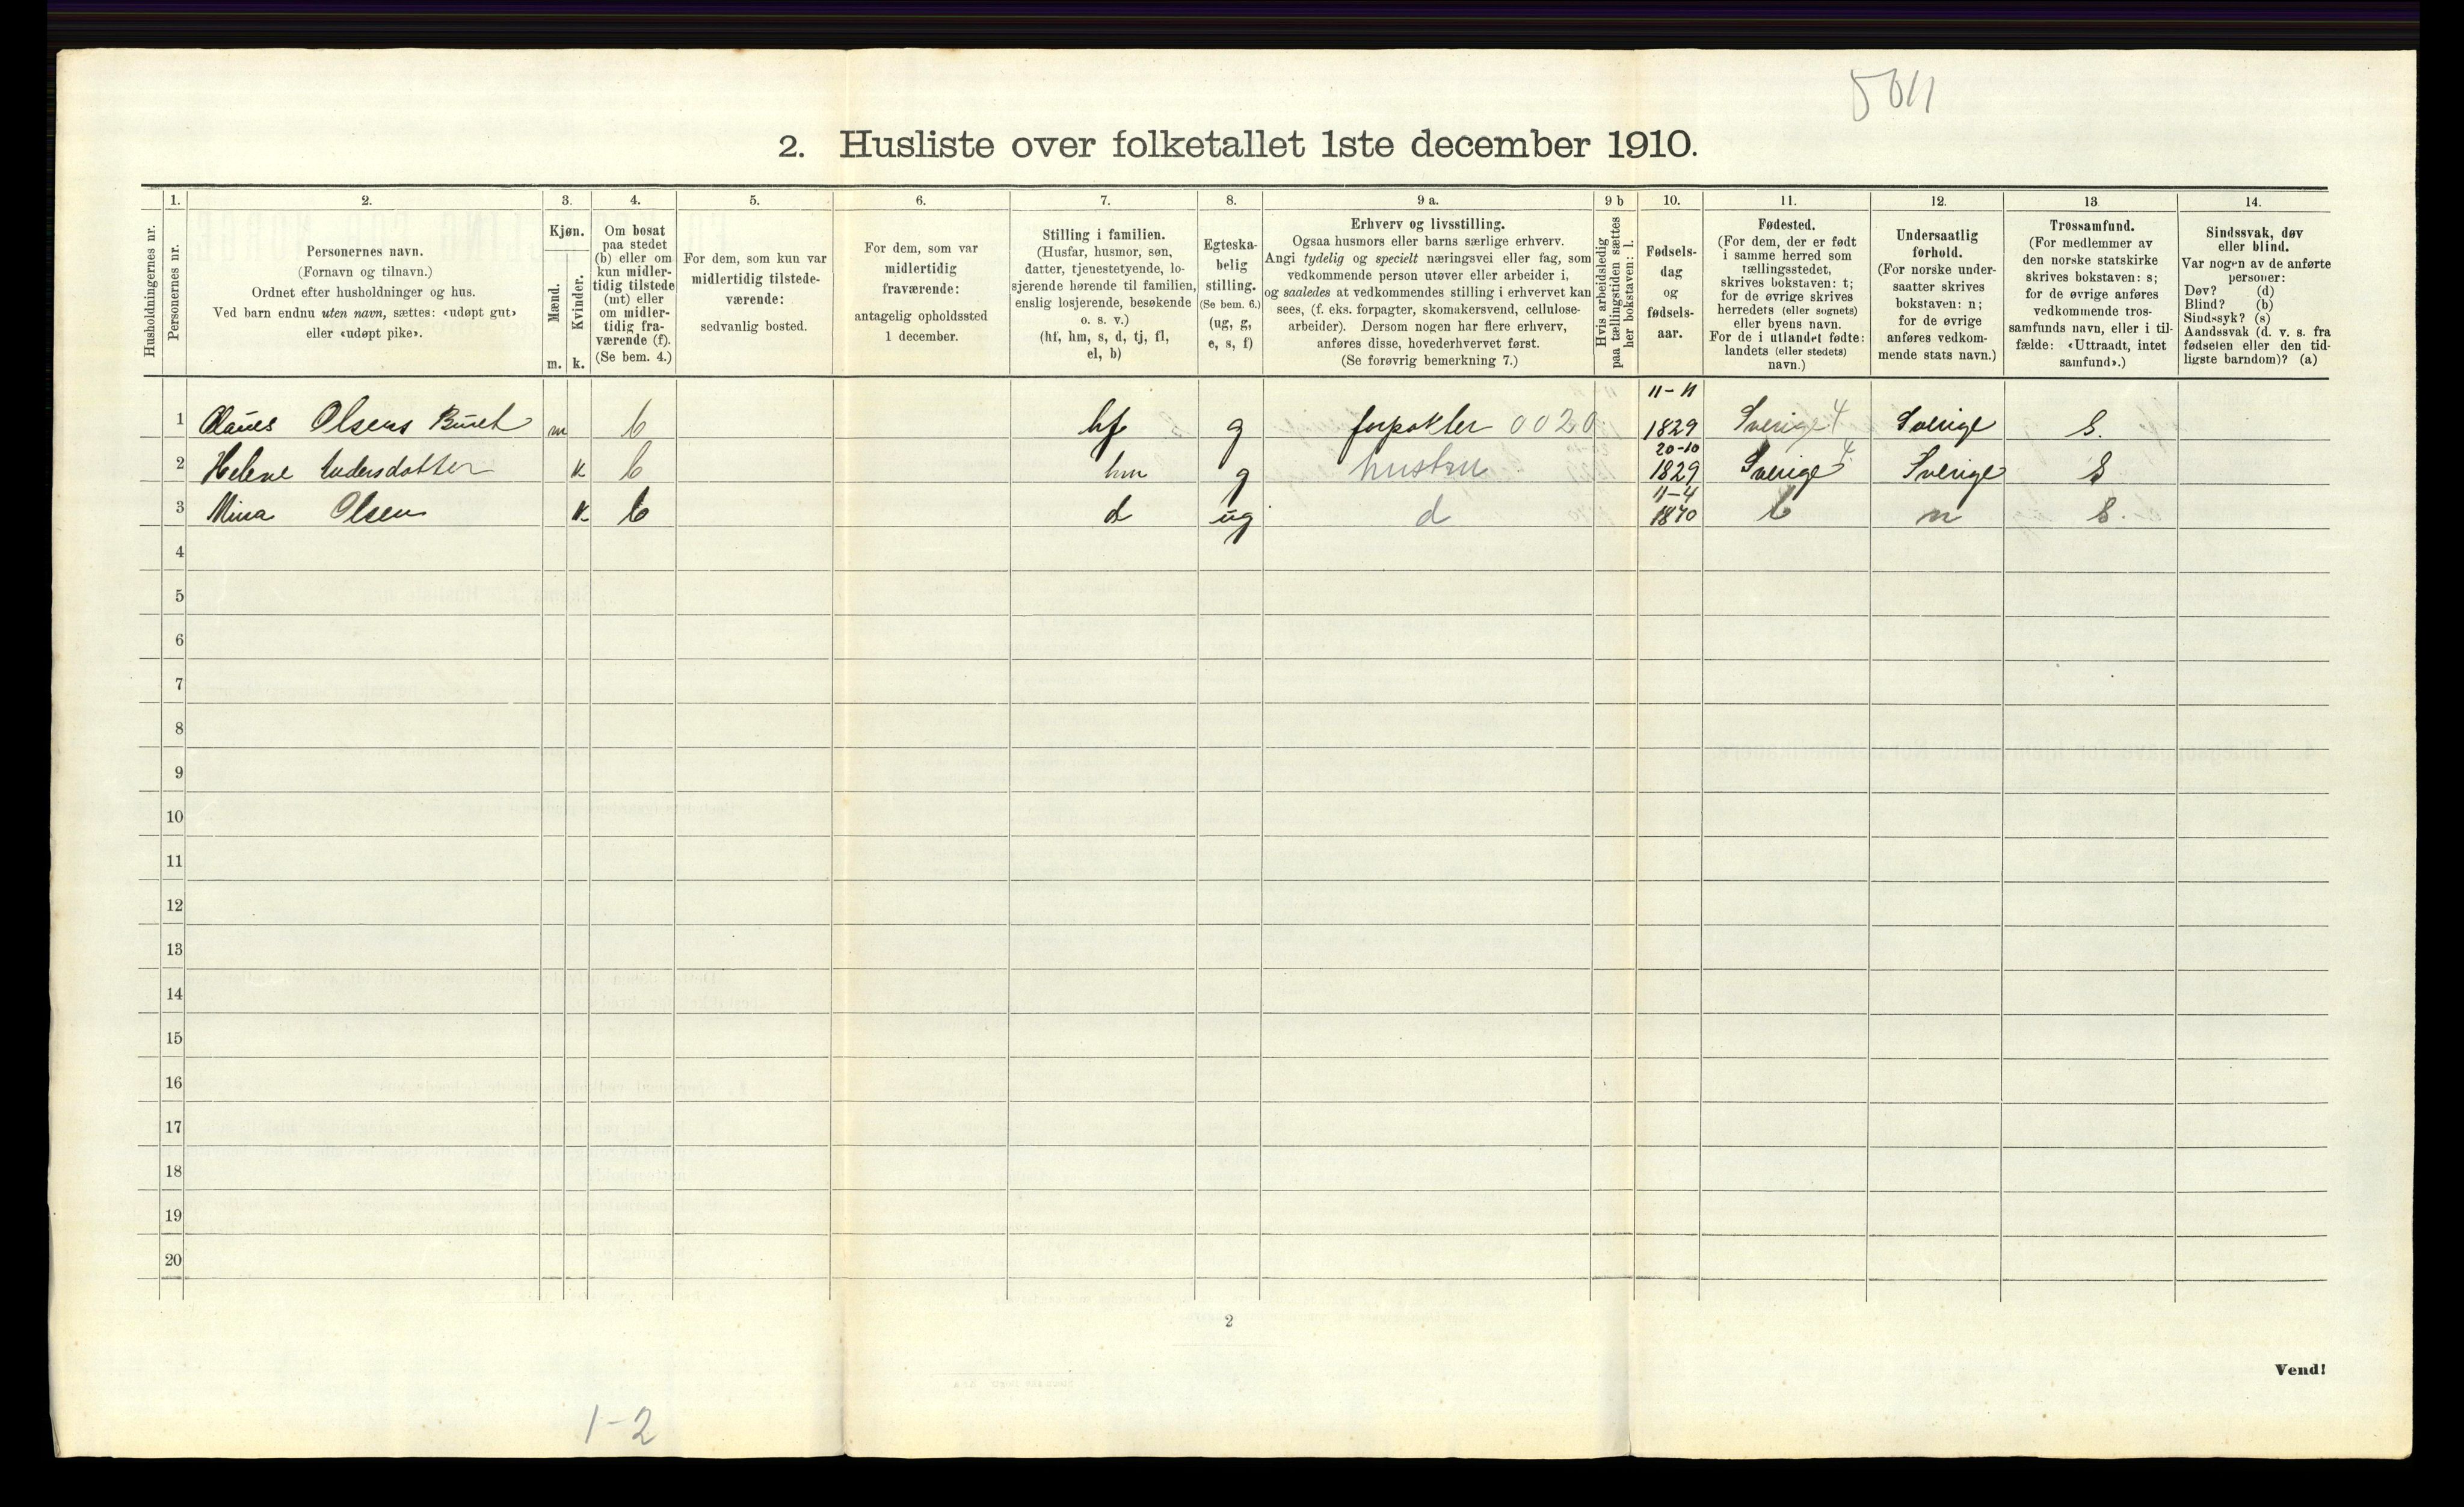 5011
2. Husliste over folketallet 1ste december 1910.
Husholdningernes nr.
1. Personernes nr.
2. Personernes navn.
(Fornavn og tilnavn.)
Ordnet efter husholdninger og hus.
Ved barn endnu uten navn, sættes: «udøpt gut»
eller «udøpt pike».
3. Kjøn.
Mænd. m.
Kvinder. k.
4. Om bosat
paa stedet
(b) eller om
kun midler-
tidig tilstede
(mt) eller
om midler-
tidig fra-
værende (f).
(Se bem. 4.)
5. For dem, som kun var
midlertidig tilstede-
værende:
sedvanlig bosted.
6. For dem, som var
midlertidig
fraværende:
antagelig opholdssted
1 december.
7. Stilling i familien.
(Husfar, husmor, søn,
datter, tjenestetyende, lo-
sjerende hørende til familien,
enslig losjerende, besøkende
o. s. v.)
(hf, hm, s, d, tj, fl,
el, b)
8. Egteska-
belig
stilling.
(Se bem. 6.)
(ug, g,
e, s, f)
9 a. Erhverv og livsstilling.
Ogsaa husmors eller barns særlige erhverv.
Angi tydelig og specielt næringsvei eller fag, som
vedkommende person utøver eller arbeider i,
og saaledes at vedkommendes stilling i erhvervet kan
sees, (f. eks. forpagter, skomakersvend, cellulose-
arbeider). Dersom nogen har flere erhverv,
anføres disse, hovederhvervet først.
(Se forøvrig bemerkning 7.)
9 b Hvis arbeidsledig
paa tællingstiden sættes
her bokstaven: l.
10. Fødsels-
dag
og
fødsels-
aar.
11. Fødested.
(For dem, der er født
i samme herred som
tællingsstedet,
skrives bokstaven: t;
for de øvrige skrives
herredets (eller sognets)
eller byens navn.
For de i utlandet fødte:
landets (eller stedets)
navn.)
12. Undersaatlig
forhold.
(For norske under-
saatter skrives
bokstaven: n;
for de øvrige
anføres vedkom-
mende stats navn.)
13 Trossamfund.
(For medlemmer av
den norske statskirke
skrives bokstaven: s;
for de øvrige anføres
vedkommende tros-
samfunds navn, eller i til-
fælde: «Uttraadt, intet
samfund».)
14. Sindssvak, døv
eller blind.
Var nogen av de anførte
personer:
Døv? (d)
Blind? (b)
Sindssyk? (s)
Aandssvak (d. v. s. fra
fødselen eller den tid-
ligste barndom)? (a)
1 Olsens m b hf g 0020 11-11 1829 Sverige 4 Sverige S.
2 Helene Andersdatter k b hm g hustru 20-10 1829 Sverige 4 Sverige S
3 Mina Olsen k b d ug d 11-4 1870 n S.
4
5
6
7
8
9
10
11
12
13
14
15
16
17
18
19
20
2
Vend!
1-2